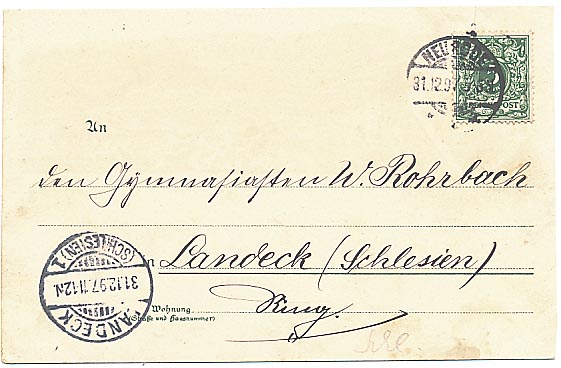 NEURODE
31.12.97
REICHSPOST
An
den Gymnasiasten W. Rohrbach
in Landeck (Schlesien)
Wohnung
(Straße und Hausnummer)
Ring.
LANDECK
31.12.97.11-12V.
(SCHLESIEN)